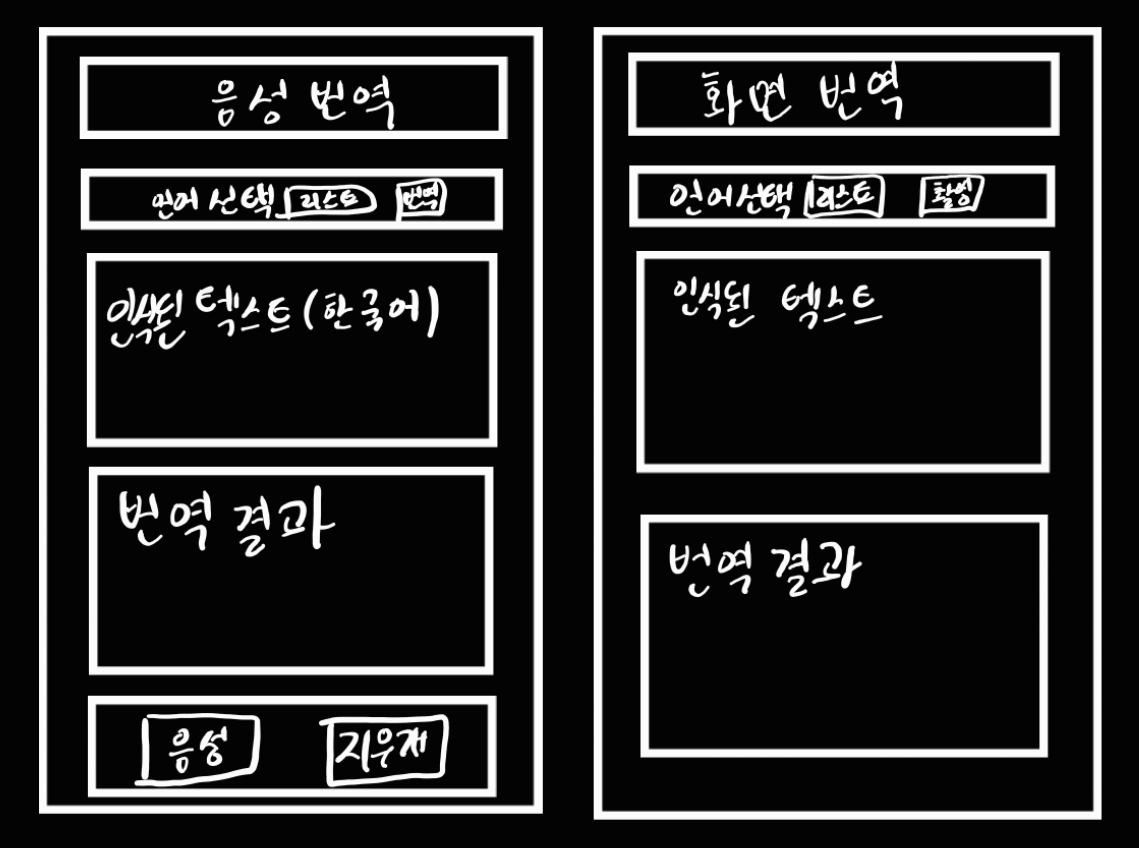 음성 번역
언어 선택 리스트 번역
인식된 텍스트(한국어)
번역 결과
음성 지우개
화면 번역
언어선택 리스트 촬영
인식된 텍스트
번역 결과